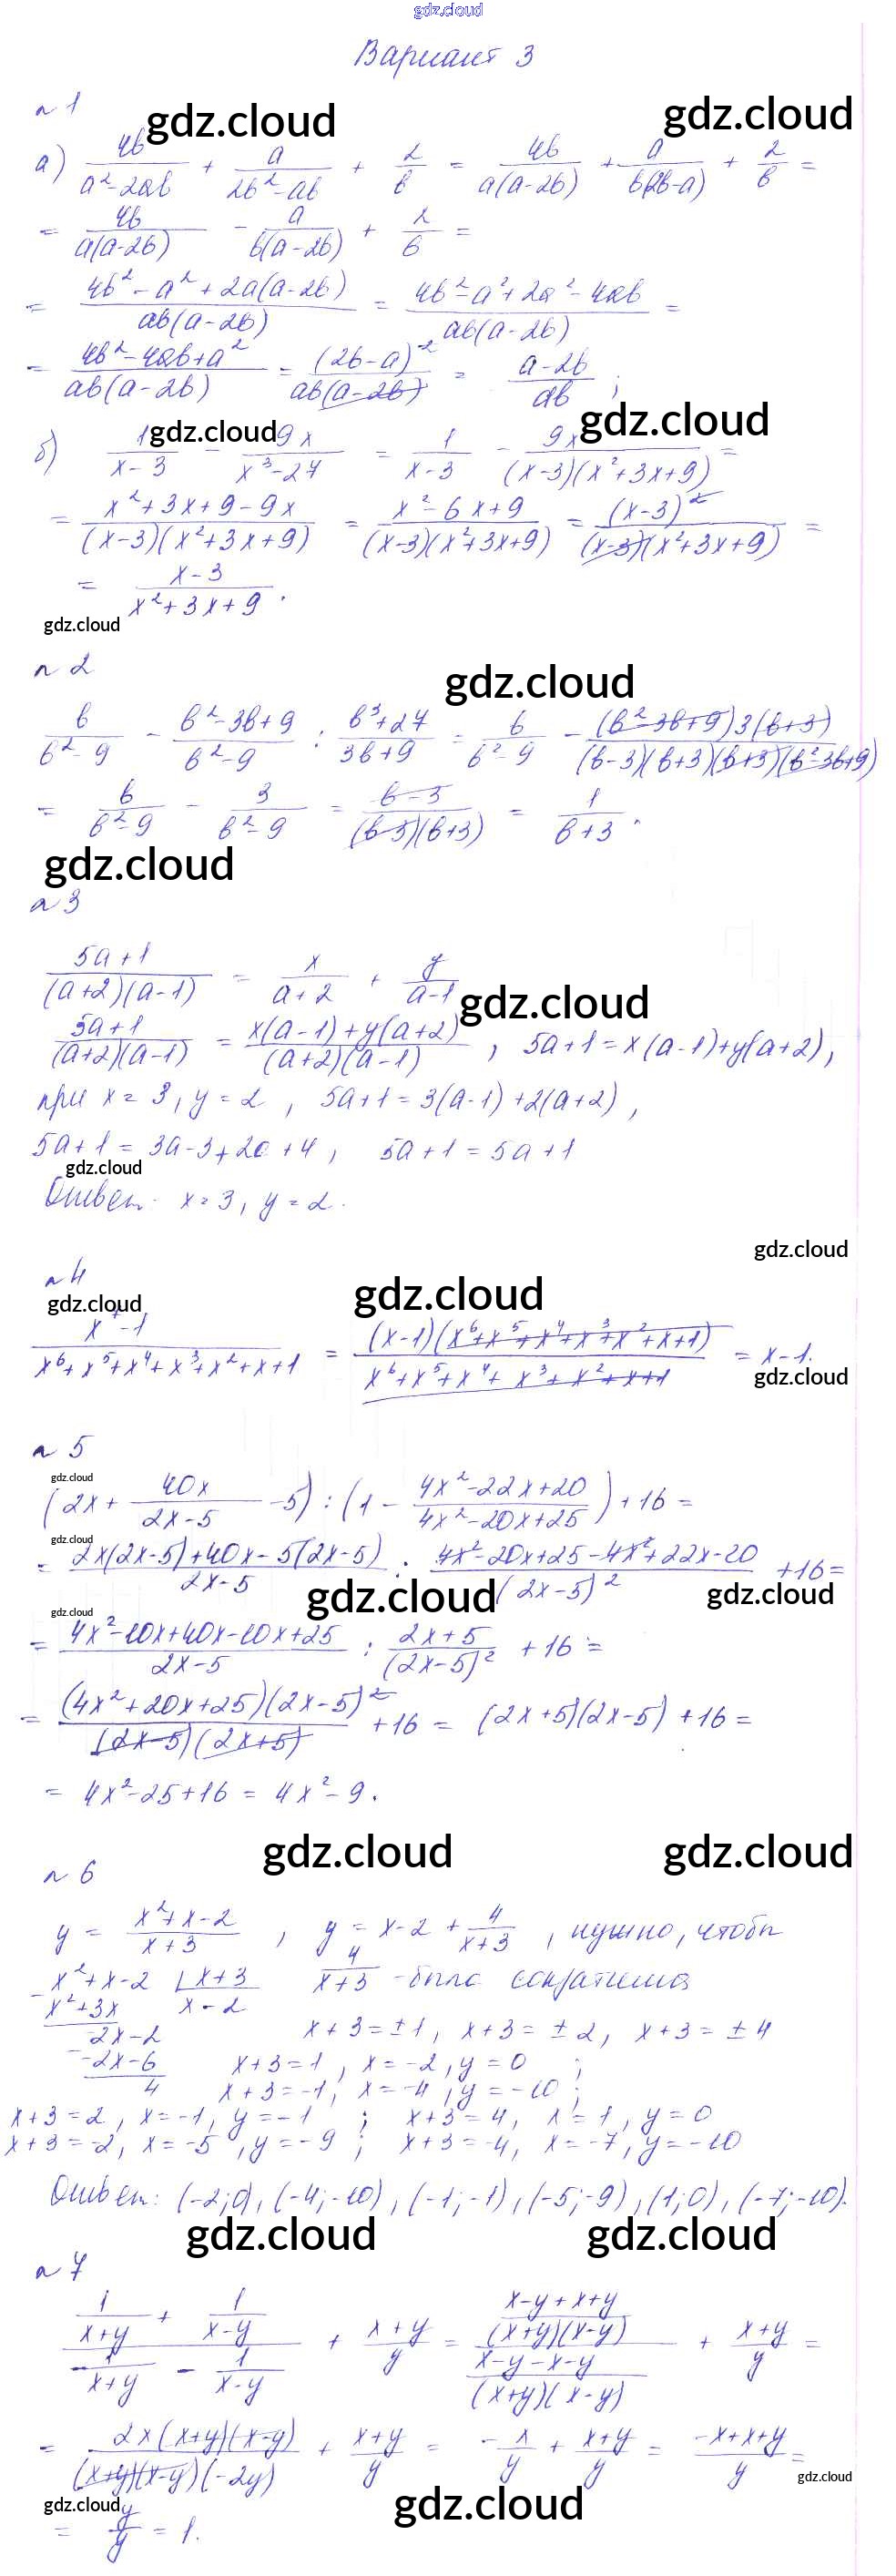 gdz.cloud
Вариант 3
n 1
gdz.cloud gdz.cloud
а) 4b/(a²-2ab) + a/(2b²-ab) + 2/b = 4b/(a(a-2b)) + a/(b(2b-a)) + 2/b =
= 4b/(a(a-2b)) - a/(b(a-2b)) + 2/b =
= (4b²-a²+2a(a-2b))/(ab(a-2b)) = (4b²-a²+2a²-4ab)/(ab(a-2b)) =
= (4b²-4ab+a²)/(ab(a-2b)) = (2b-a)²/(ab(a-2b)) = (a-2b)/(ab);
gdz.cloud gdz.cloud
б) 1/(x-3) - 9x/(x³-27) = 1/(x-3) - 9x/((x-3)(x²+3x+9)) =
= (x²+3x+9-9x)/((x-3)(x²+3x+9)) = (x²-6x+9)/((x-3)(x²+3x+9)) = (x-3)²/((x-3)(x²+3x+9)) =
= (x-3)/(x²+3x+9).
gdz.cloud
n 2
gdz.cloud
b/(b²-9) - (b²-3b+9)/(b²-9) : (b³+27)/(3b+9) = b/(b²-9) - ((b²-3b+9)3(b+3))/((b-3)(b+3)(b+3)(b²-3b+9))
= b/(b²-9) - 3/(b²-9) = (b-3)/((b-3)(b+3)) = 1/(b+3).
gdz.cloud
n 3
(5a+1)/((a+2)(a-1)) = x/(a+2) + y/(a-1)
gdz.cloud
(5a+1)/((a+2)(a-1)) = (x(a-1)+y(a+2))/((a+2)(a-1)), 5a+1=x(a-1)+y(a+2),
при x=3, y=2, 5a+1=3(a-1)+2(a+2),
5a+1=3a-3+2a+4, 5a+1=5a+1
gdz.cloud
Ответ: x=3, y=2.
gdz.cloud
n 4
gdz.cloud gdz.cloud
(x⁷-1)/(x⁶+x⁵+x⁴+x³+x²+x+1) = ((x-1)(x⁶+x⁵+x⁴+x³+x²+x+1))/(x⁶+x⁵+x⁴+x³+x²+x+1) = x-1.
gdz.cloud
n 5
gdz.cloud
(2x + 40x/(2x-5) - 5) : (1 - (4x²-22x+20)/(4x²-20x+25)) + 16 =
gdz.cloud
= (2x(2x-5)+40x-5(2x-5))/(2x-5) : (4x²-20x+25-4x²+22x-20)/(2x-5)² + 16 =
gdz.cloud gdz.cloud
gdz.cloud
= (4x²-10x+40x-10x+25)/(2x-5) : (2x+5)/(2x-5)² + 16 =
= ((4x²+20x+25)(2x-5)²)/((2x-5)(2x+5)) + 16 = (2x+5)(2x-5)+16 =
= 4x²-25+16 = 4x²-9.
gdz.cloud gdz.cloud
n 6
y = (x²+x-2)/(x+3), y = x-2 + 4/(x+3), нужно, чтобы
x²+x-2 | x+3 4/(x+3) - была сократима
x²+3x x-2
-2x-2 x+3=±1, x+3=±2, x+3=±4
-2x-6 x+3=1, x=-2, y=0;
4 x+3=-1, x=-4, y=-10;
x+3=2, x=-1, y=-1; x+3=4, x=1, y=0
x+3=-2, x=-5, y=-9; x+3=-4, x=-7, y=-10
Ответ: (-2;0), (-4;-10), (-1;-1), (-5;-9), (1;0), (-7;-10).
gdz.cloud gdz.cloud
n 7
(1/(x+y) + 1/(x-y))/(1/(x+y) - 1/(x-y)) + (x+y)/y = ((x-y+x+y)/((x+y)(x-y)))/((x-y-x-y)/((x+y)(x-y))) + (x+y)/y =
= (2x(x+y)(x-y))/((x+y)(x-y)(-2y)) + (x+y)/y = -x/y + (x+y)/y = (-x+x+y)/y =
gdz.cloud
gdz.cloud gdz.cloud
= y/y = 1.